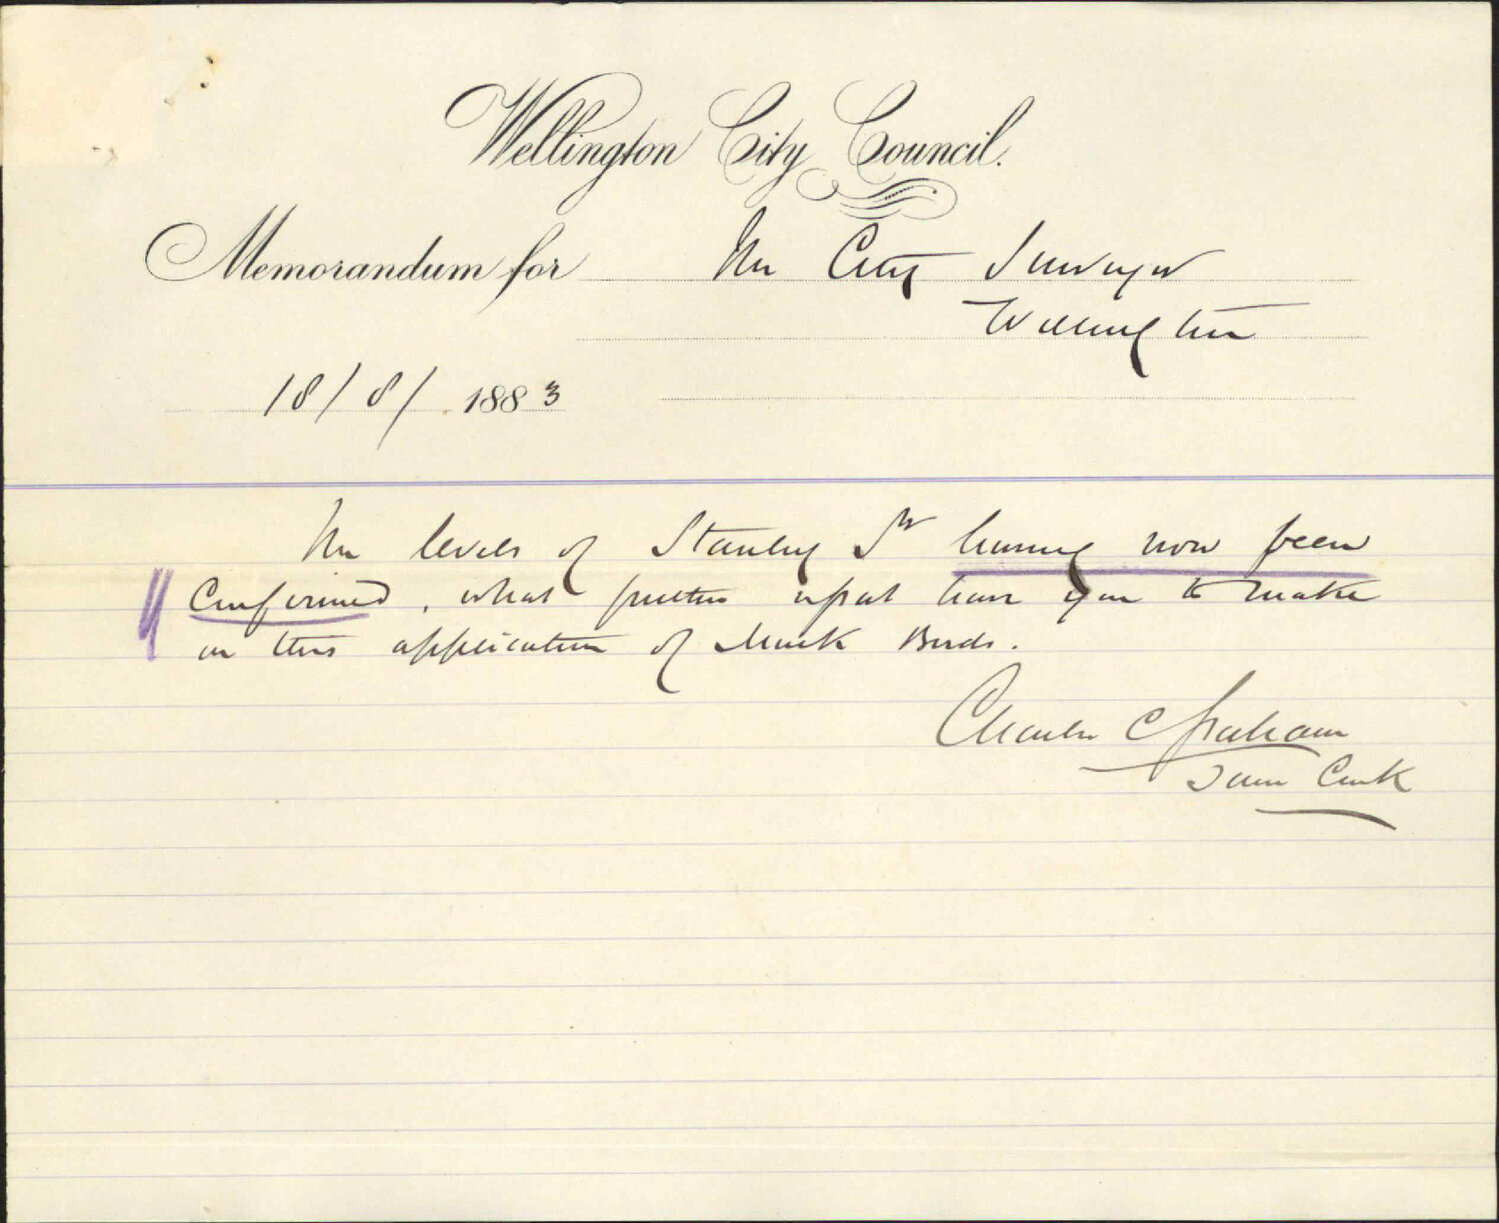 Wellington City Council.
Memorandum for The City Surveyor
Wellington
18/8/1883
The levels of Stanley St having now been
Confirmed, what further report have you to make
on this application of Mark Birds.
Charles C Graham
Town Clerk